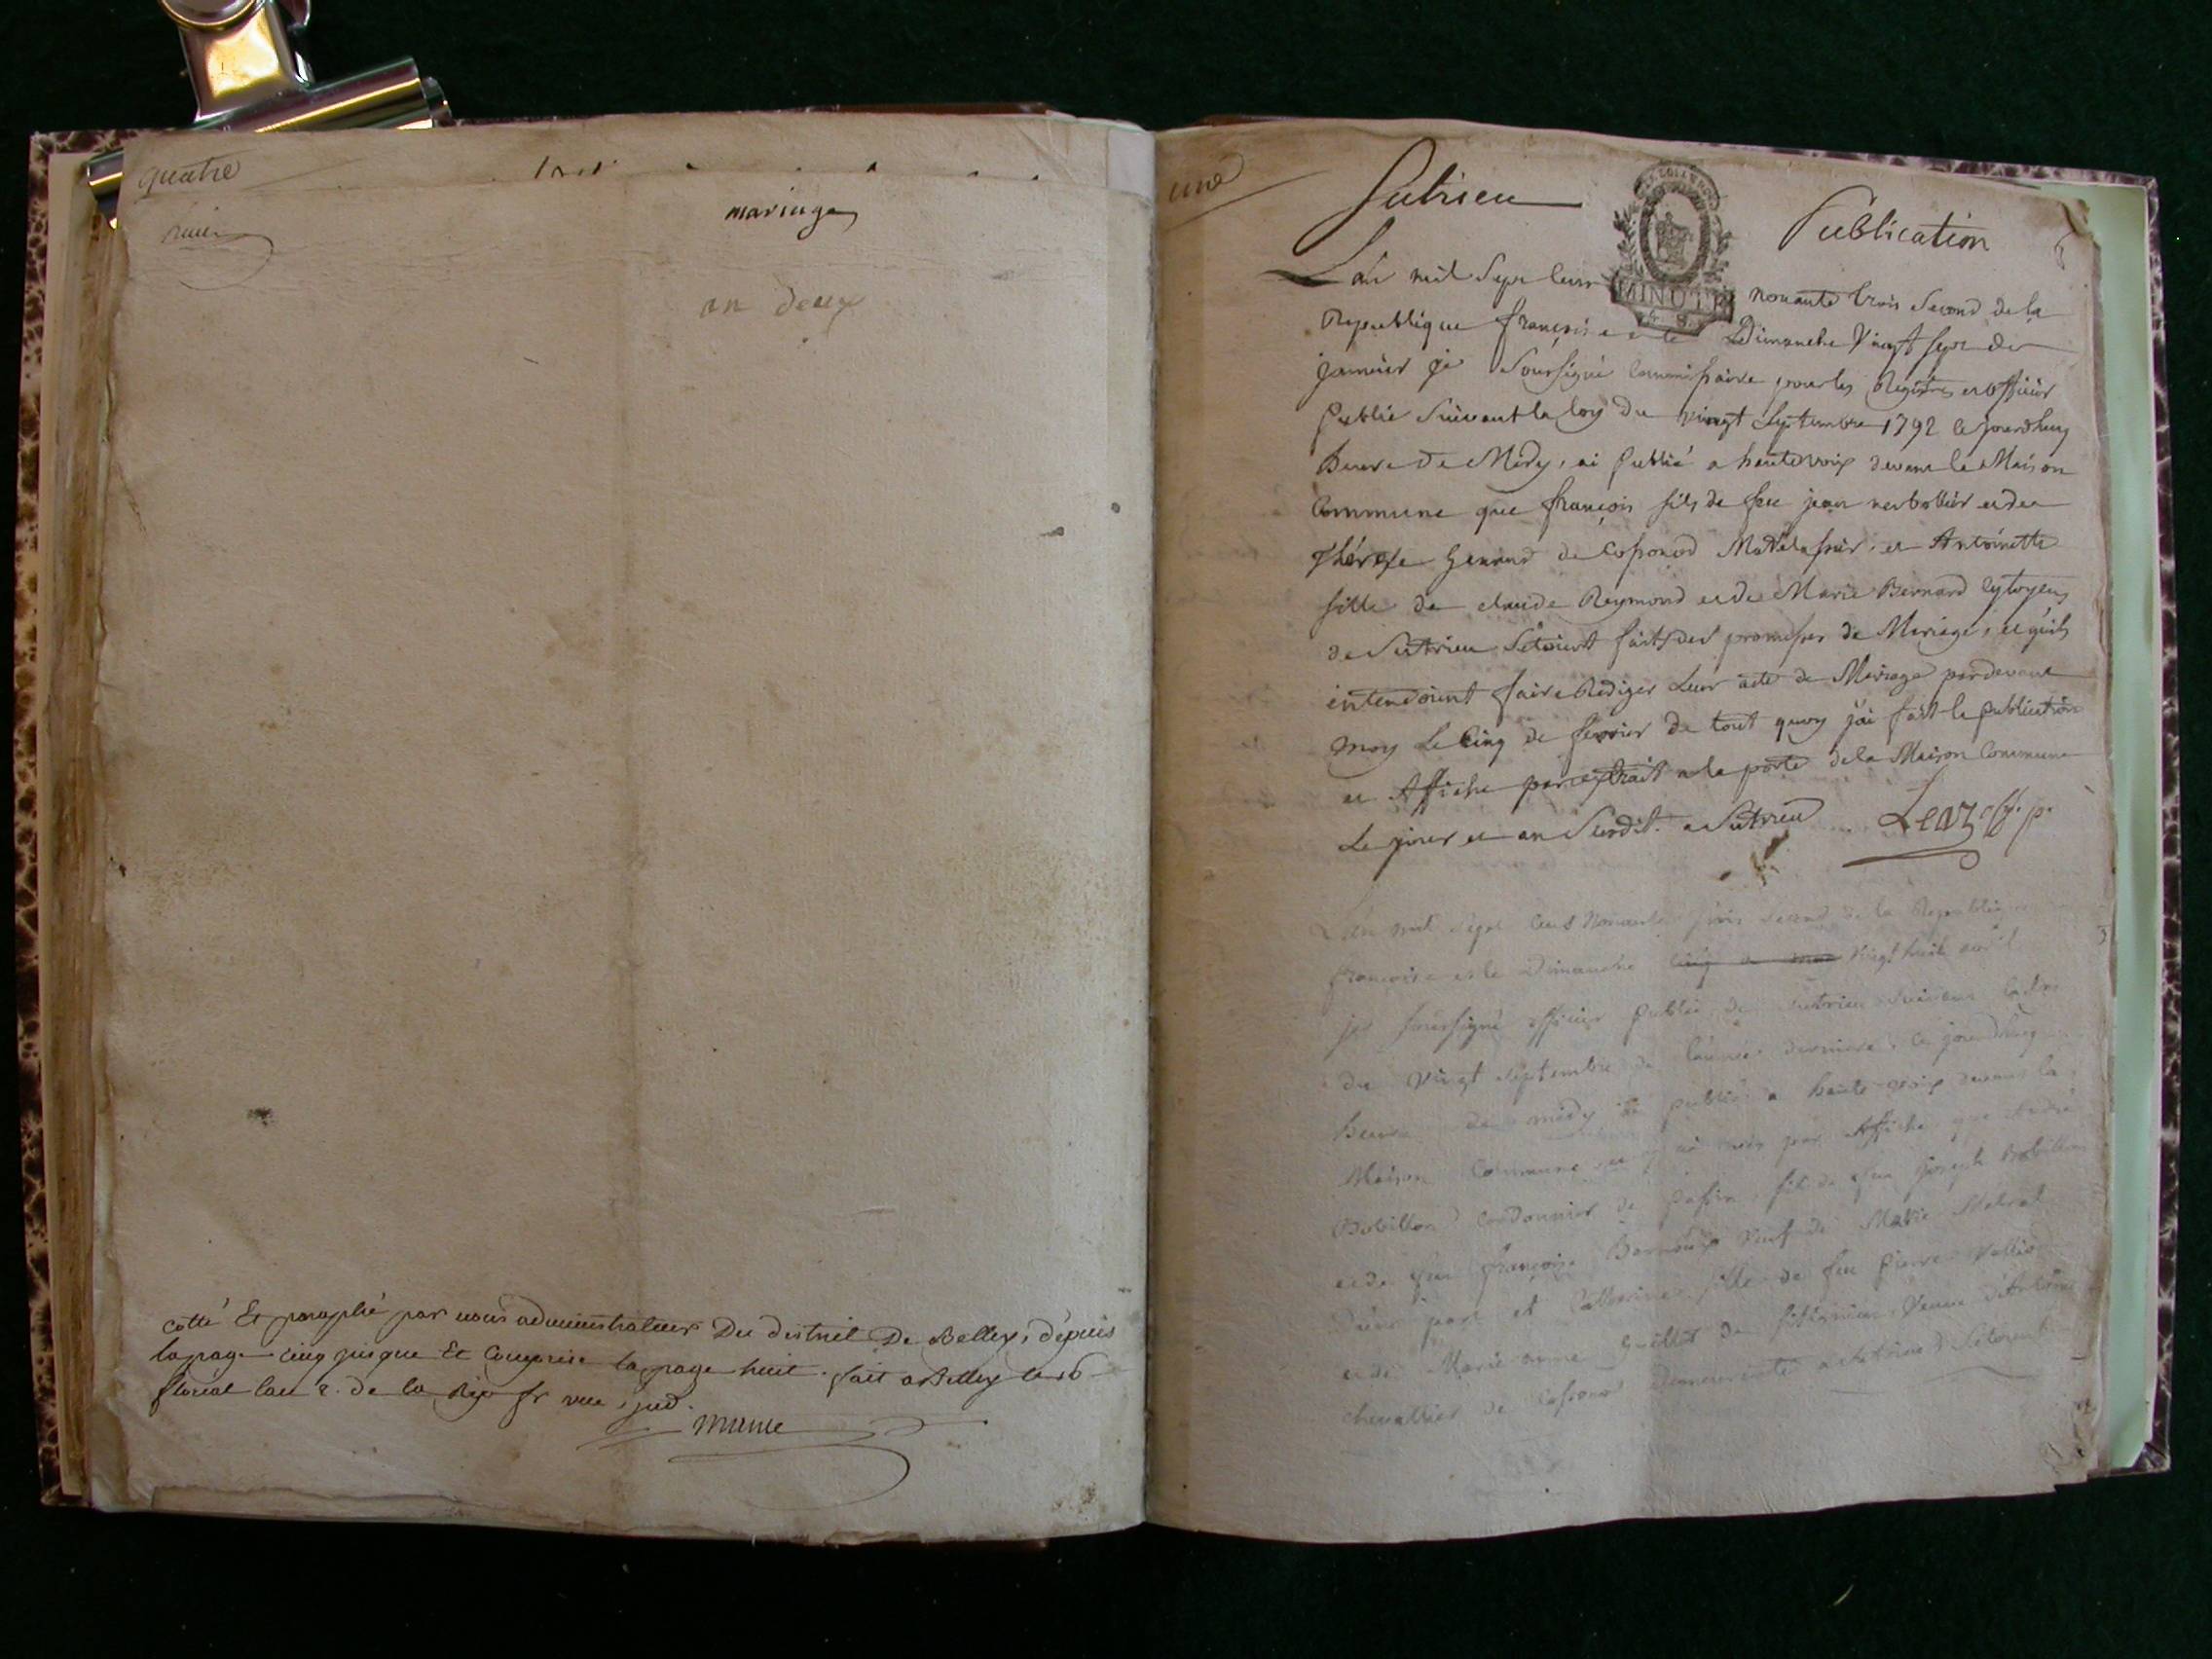 quatre
huit
mariage
an deux
cotté Et paraphé par nous administrateur Du district De Belley, depuis
la page cinq jusque Et Comprise la page huit. fait a Belley le 16
floreal lan 2. de la Rep fr une, ind.
une
Sutrieu
Publication
MINUTE
Lan mil Sept cent nonante trois Second de la
Republique françoise et le Dimanche Vingt sept de
janvier je Soussigné Commissaire pour les Registres et officier
public Suivant la loy du vingt Septembre 1792 ce jourdhuy
heure de Midy, ai publié a haute voix devant la Maison
Commune que françois fils de feu jean et de
Thérese de Matelassier, et Antoinette
fille de claude Reymond et de Marie Bernard Cytoyens
de Sutrieu Setoient faits des promesses de Mariage, et quils
entendoient faire Rediger Leur acte de Mariage pardevant
moy Le Cinq de fevrier de tout quoy j'ai fait la publication
et Affiche par extrait a la porte de la Maison Commune
Le jour et an Susdit. a Sutrieu
Lan mil Sept Cent Nonante trois second de la Republique
francoise et le Dimanche Vingt huit avril
je soussigné officier public de Sutrieu Suivant la loy
du Vingt Septembre de l'année derniere, ce jourdhuy
heure de midy ai publié a haute voix devant la
Maison Commune et ai mis par Affiche que André
Bobillon Cordonnier de passin, fils de feu joseph Bobillon
et de feu françoise veuf de Marie
d'une part et Catherine fille de feu pierre
et de Marie anne de Veuve d'Antoine
chevallier de demeurante a Sutrieu Setoient